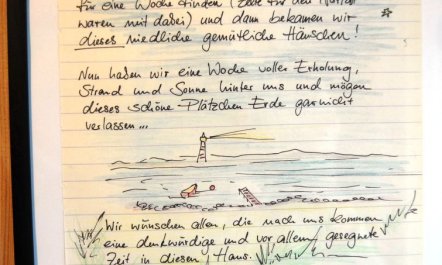 für eine Woche finden (Zelte für den Notfall
waren mit dabei) und dann bekamen wir
dieses niedliche gemütliche Häuschen!
Nun haben wir eine Woche voller Erholung,
Strand und Sonne hinter uns und mögen
dieses schöne Plätzchen Erde gar nicht
verlassen...
Wir wünschen allen, die nach uns kommen
eine denkwürdige und vor allem gesegnete
Zeit in diesem Haus.